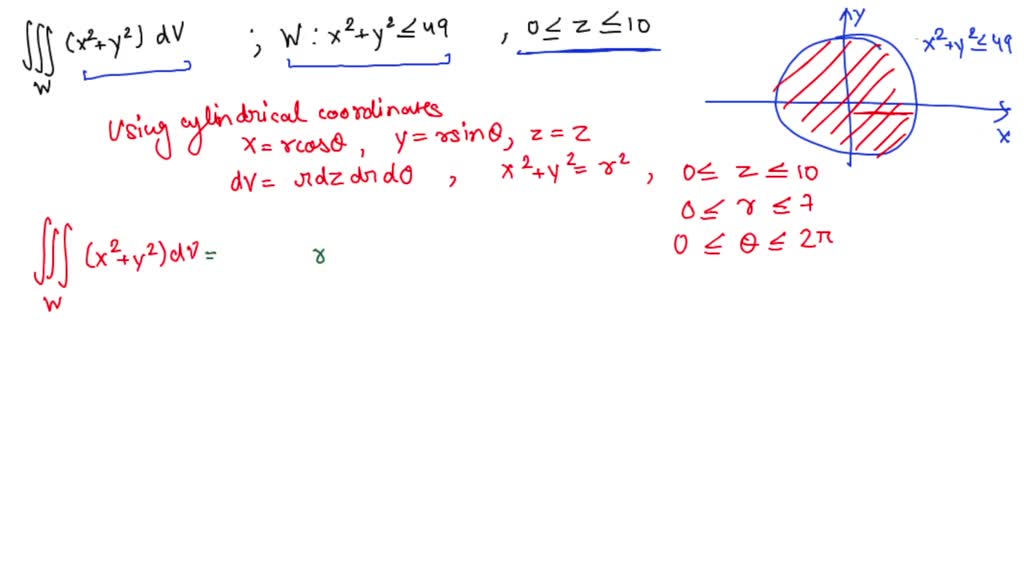 ∭_W (x²+y²) dV ; W : x²+y² ≤ 49 , 0 ≤ z ≤ 10
y
x²+y² ≤ 49
x
Using cylindrical coordinates
x = rcosθ , y = rsinθ, z = z
dV = rdzdrdθ , x²+y² = r² , 0 ≤ z ≤ 10
0 ≤ r ≤ 7
0 ≤ θ ≤ 2π
∭_W (x²+y²) dV = r